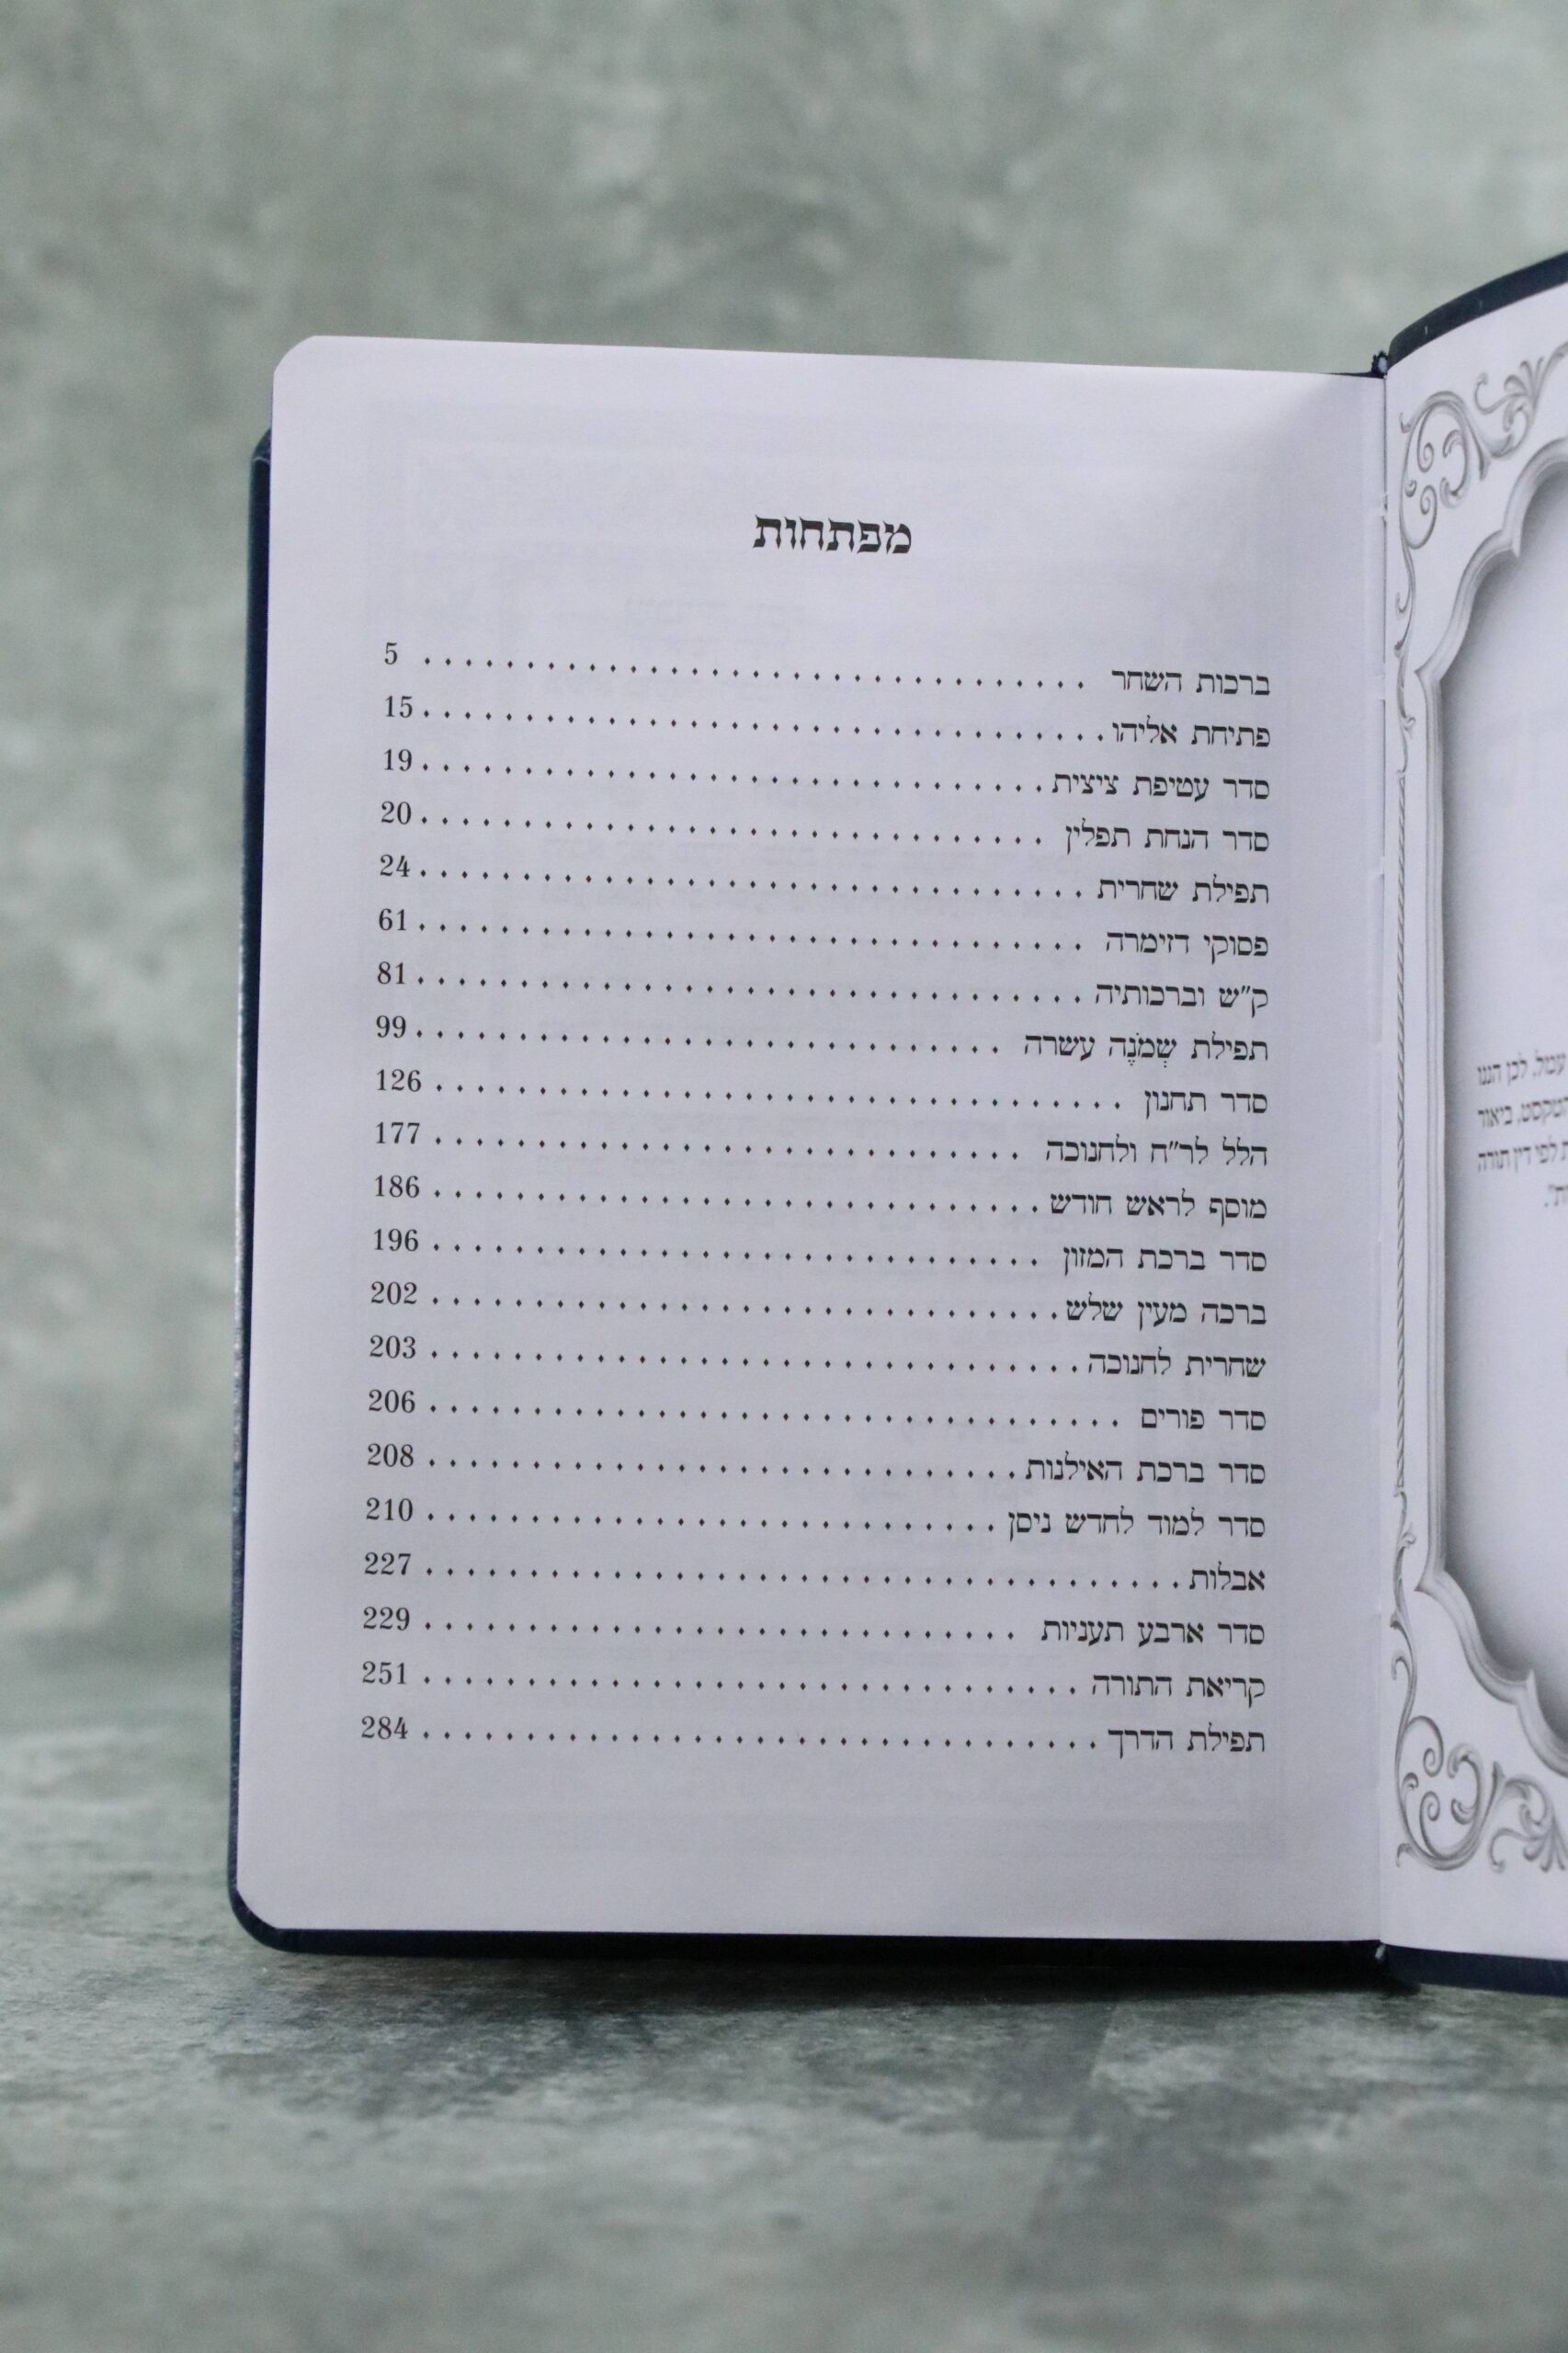 מפתחות
ברכות השחר 5
פתיחת אליהו 15
סדר עטיפת ציצית 19
סדר הנחת תפלין 20
תפילת שחרית 24
פסוקי דזימרה 61
ק"ש וברכותיה 81
תפילת שְמֹנֶה עשרה 99
סדר תחנון 126
הלל לר"ח ולחנוכה 177
מוסף לראש חודש 186
סדר ברכת המזון 196
ברכה מעין שלש 202
שחרית לחנוכה 203
סדר פורים 206
סדר ברכת האילנות 208
סדר למוד לחדש ניסן 210
אבלות 227
סדר ארבע תעניות 229
קריאת התורה 251
תפילת הדרך 284
לכן הננו
ביאור
לפי דין תורה